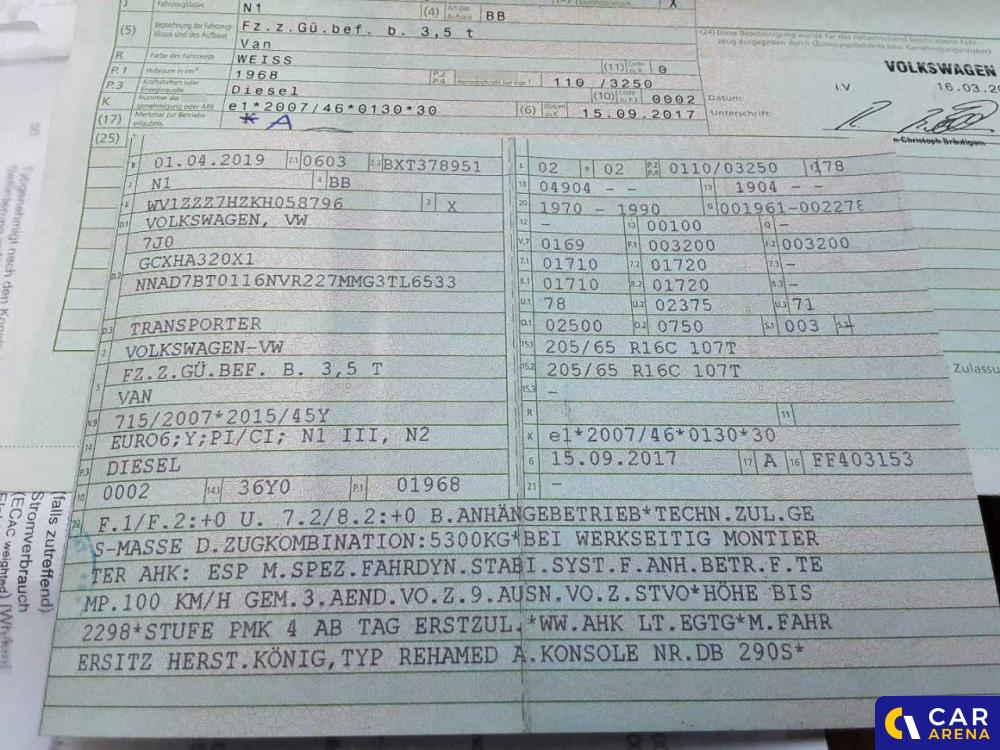 J Fahrzeugklasse N1 (4) Art des Aufbaus BB X
(5) Bezeichnung der Fahrzeug- klasse und des Aufbaus Fz.z.Gü.bef. b. 3,5 t
Van
R Farbe des Fahrzeugs WEISS (11) Code zu R 0
P.1 Hubraum in cm³ 1968 P.2 P.4 110 /3250
P.3 Kraftstoffart oder Energiequelle Diesel (10) Code zu P.3 0002
K Nummer der genehmigung oder ABE e1*2007/46*0130*30 (6) Datum zu K 15.09.2017
(17) Merkmal zur Betriebs- erlaubnis K A
VOLKSWAGEN
I.V. 16.03.20
Datum:
Unterschrift:
-Christoph Bräutigam
(25)
B 01.04.2019 2.1 0603 2.2 BXT378951
J N1 4 BB
E WV1ZZZ7HZKH058796 3 X
D.1 VOLKSWAGEN, VW
7J0
D.2 GCXHA320X1
NNAD7BT0116NVR227MMG3TL6533
D.3 TRANSPORTER
2 VOLKSWAGEN-VW
5 FZ.Z.GÜ.BEF. B. 3,5 T
VAN
V.9 715/2007*2015/45Y
14 EURO6;Y;PI/CI; N1 III, N2
P.3 DIESEL
10 0002 14.1 36Y0 P.1 01968
L 02 9 02 P.2 P.4 0110/03250 T 178
18 04904 - - 19 1904 - -
20 1970 - 1990 G 001961-002278
12 - 13 00100 Q -
V.7 0169 F.1 003200 F.2 003200
7.1 01710 7.2 01720 7.3 -
8.1 01710 8.2 01720 8.3 -
U.1 78 U.2 02375 U.3 71
O.1 02500 O.2 0750 S.1 003 S.2 -
15.1 205/65 R16C 107T
15.2 205/65 R16C 107T
15.3 -
R 11
K e1*2007/46*0130*30
6 15.09.2017 17 A 16 FF403153
21 -
22 F.1/F.2:+0 U. 7.2/8.2:+0 B.ANHÄNGEBETRIEB*TECHN.ZUL.GE
S-MASSE D.ZUGKOMBINATION:5300KG*BEI WERKSEITIG MONTIER
TER AHK: ESP M.SPEZ.FAHRDYN.STABI.SYST.F.ANH.BETR.F.TE
MP.100 KM/H GEM.3.AEND.VO.Z.9.AUSN.VO.Z.STVO*HÖHE BIS
2298*STUFE PMK 4 AB TAG ERSTZUL.*WW.AHK LT.EGTG*M.FAHR
ERSITZ HERST.KÖNIG,TYP REHAMED A.KONSOLE NR.DB 290S*
Zulassu
falls zutreffend)
Stromverbrauch
(ECAC weighted)
CAR
ARENA